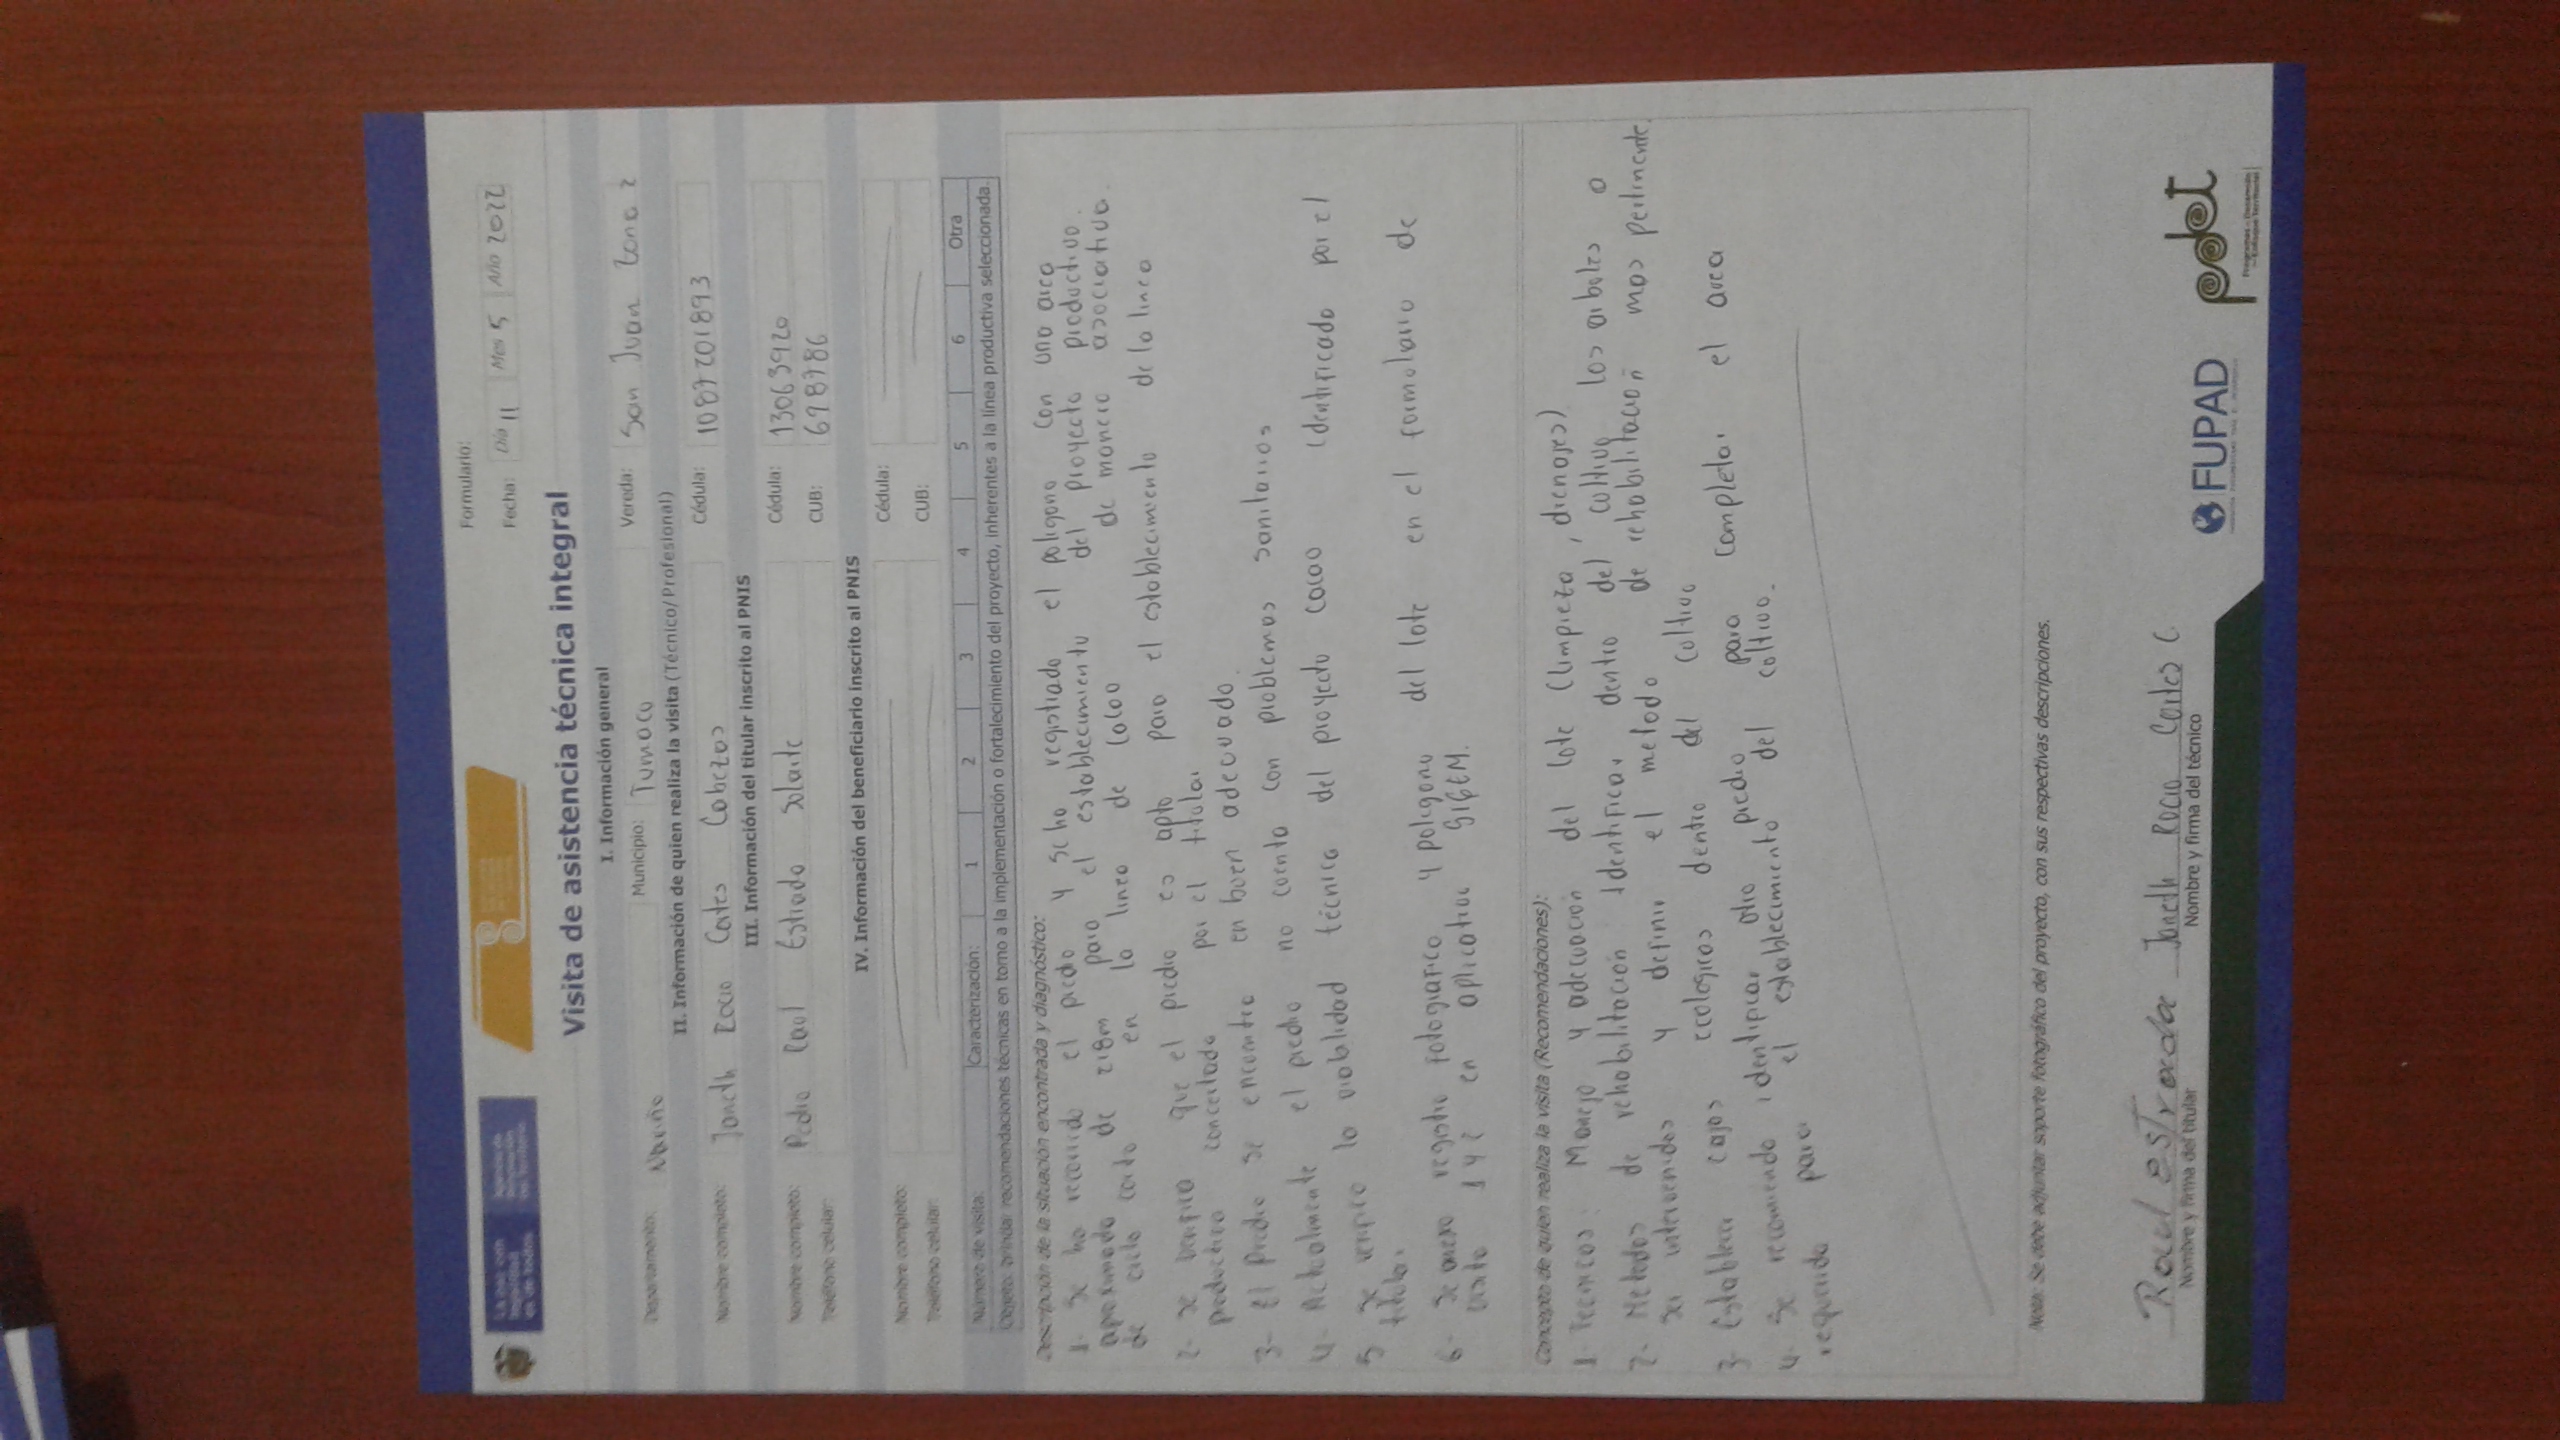 La paz con
legalidad
es de todos
Agencia de
Renovación
del Territorio
Formulario:
Fecha: Día 11 Mes 5 Año 2022
Visita de asistencia técnica integral
I. Información general
Departamento: Nariño Municipio: Tumaco Vereda: San Juan Zona 2
II. Información de quien realiza la visita (Técnico/Profesional)
Nombre completo: Janeth Rocio Cortes Cabezas Cédula: 1087201893
III. Información del titular inscrito al PNIS
Nombre completo: Pedro Raul Estrada Solarte Cédula: 13063920
Teléfono celular: CUB: 698786
IV. Información del beneficiario inscrito al PNIS
Nombre completo: Cédula:
Teléfono celular: CUB:
Número de visita: Caracterización: 1 2 3 4 5 6 Otra
Objeto: brindar recomendaciones técnicas en torno a la implementación o fortalecimiento del proyecto, inherentes a la línea productiva seleccionada.
Descripción de la situación encontrada y diagnóstico:
1- Se ha recorrido el predio y se ha registrado el poligono con una area
aproximada de 218m para el establecimiento del proyecto productivo.
de ciclo corto en la linea de de manera asociativa.
2- Se verifico que el predio es apto para el establecimiento de la linea
productiva concertada por el titular
3- El Predio se encuentra en buen adecuado.
4- Actualmente el predio no cuenta con problemas sanitarios
5- se verifico la viablidad técnica del proyecto cacao identificado por el
titular
6- Se anexo registro fotografico y poligono del lote en el formulario de
1 y 2 en aplicativo SIGEM.
Concepto de quien realiza la visita (Recomendaciones):
1- Tecnicas: Manejo y adecuación del lote (limpieza, drenajes)
2- Metodos de rehabilitación identificar dentro del cultivo los arboles a
ser intervenidos y definir el metodo de rehabilitación mas pertinente.
3- Establecer cajas ecologicas dentro del cultivo
4- Se recomienda identificar otro predio para completar el area
requerida para el establecimiento del cultivo.
Nota: Se debe adjuntar soporte fotográfico del proyecto, con sus respectivas descripciones.
Raul estrada Janeth Rocio Cortes C.
Nombre y firma del titular Nombre y firma del técnico
FUPAD
pdet
Programas de Desarrollo
con Enfoque Territorial